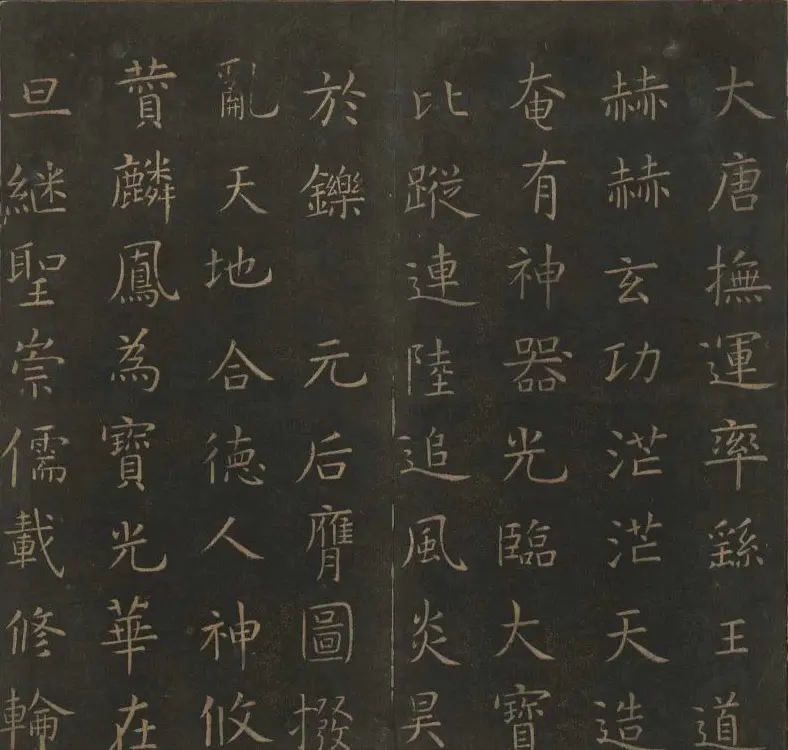 大唐撫運率繇王道
赫赫玄功茫茫天造
奄有神器光臨大寶
比蹤連陸追風炎昊
於鑠 元后膺圖撥
亂天地合德人神攸
贊麟鳳為寶光華在
旦継聖崇儒載修輪